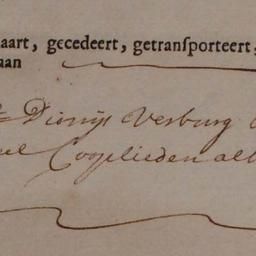 aart, gecedeert, getranſporteert,
aan
Dionijs Verburg
Coopelieden alb